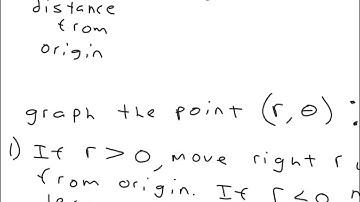 distance
from
origin
graph the point (r, θ) :
1) If r > 0, move right r
from origin. If r < 0